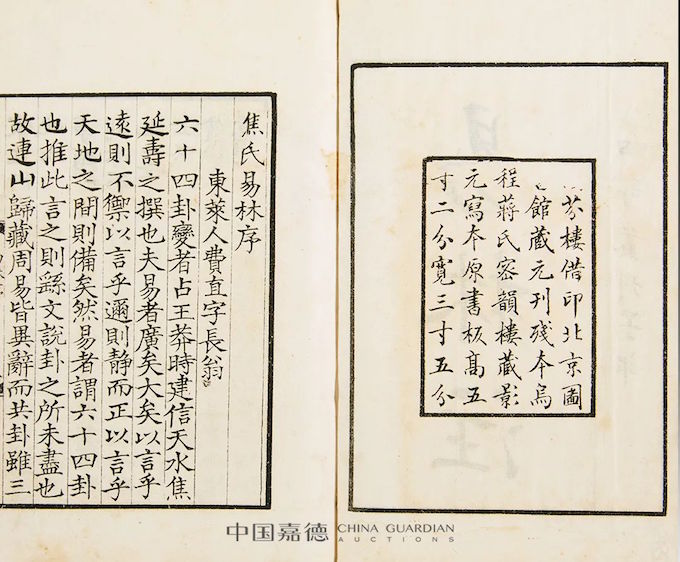 芬樓借印北京圖
館藏元刊殘本烏
程蔣氏密韻樓藏影
元寫本原書板高五
寸二分寬三寸五分
焦氏易林序
東萊人費直字長翁
六十四卦變者占王莽時建信天水焦
延壽之撰也夫易者廣矣大矣以言乎
遠則不禦以言乎邇則静而正以言乎
天地之間則備矣然易者謂六十四卦
也推此言之則繇文說卦之所未盡也
故連山歸藏周易皆異辭而共卦雖三
中国嘉德 CHINA GUARDIAN
AUCTIONS